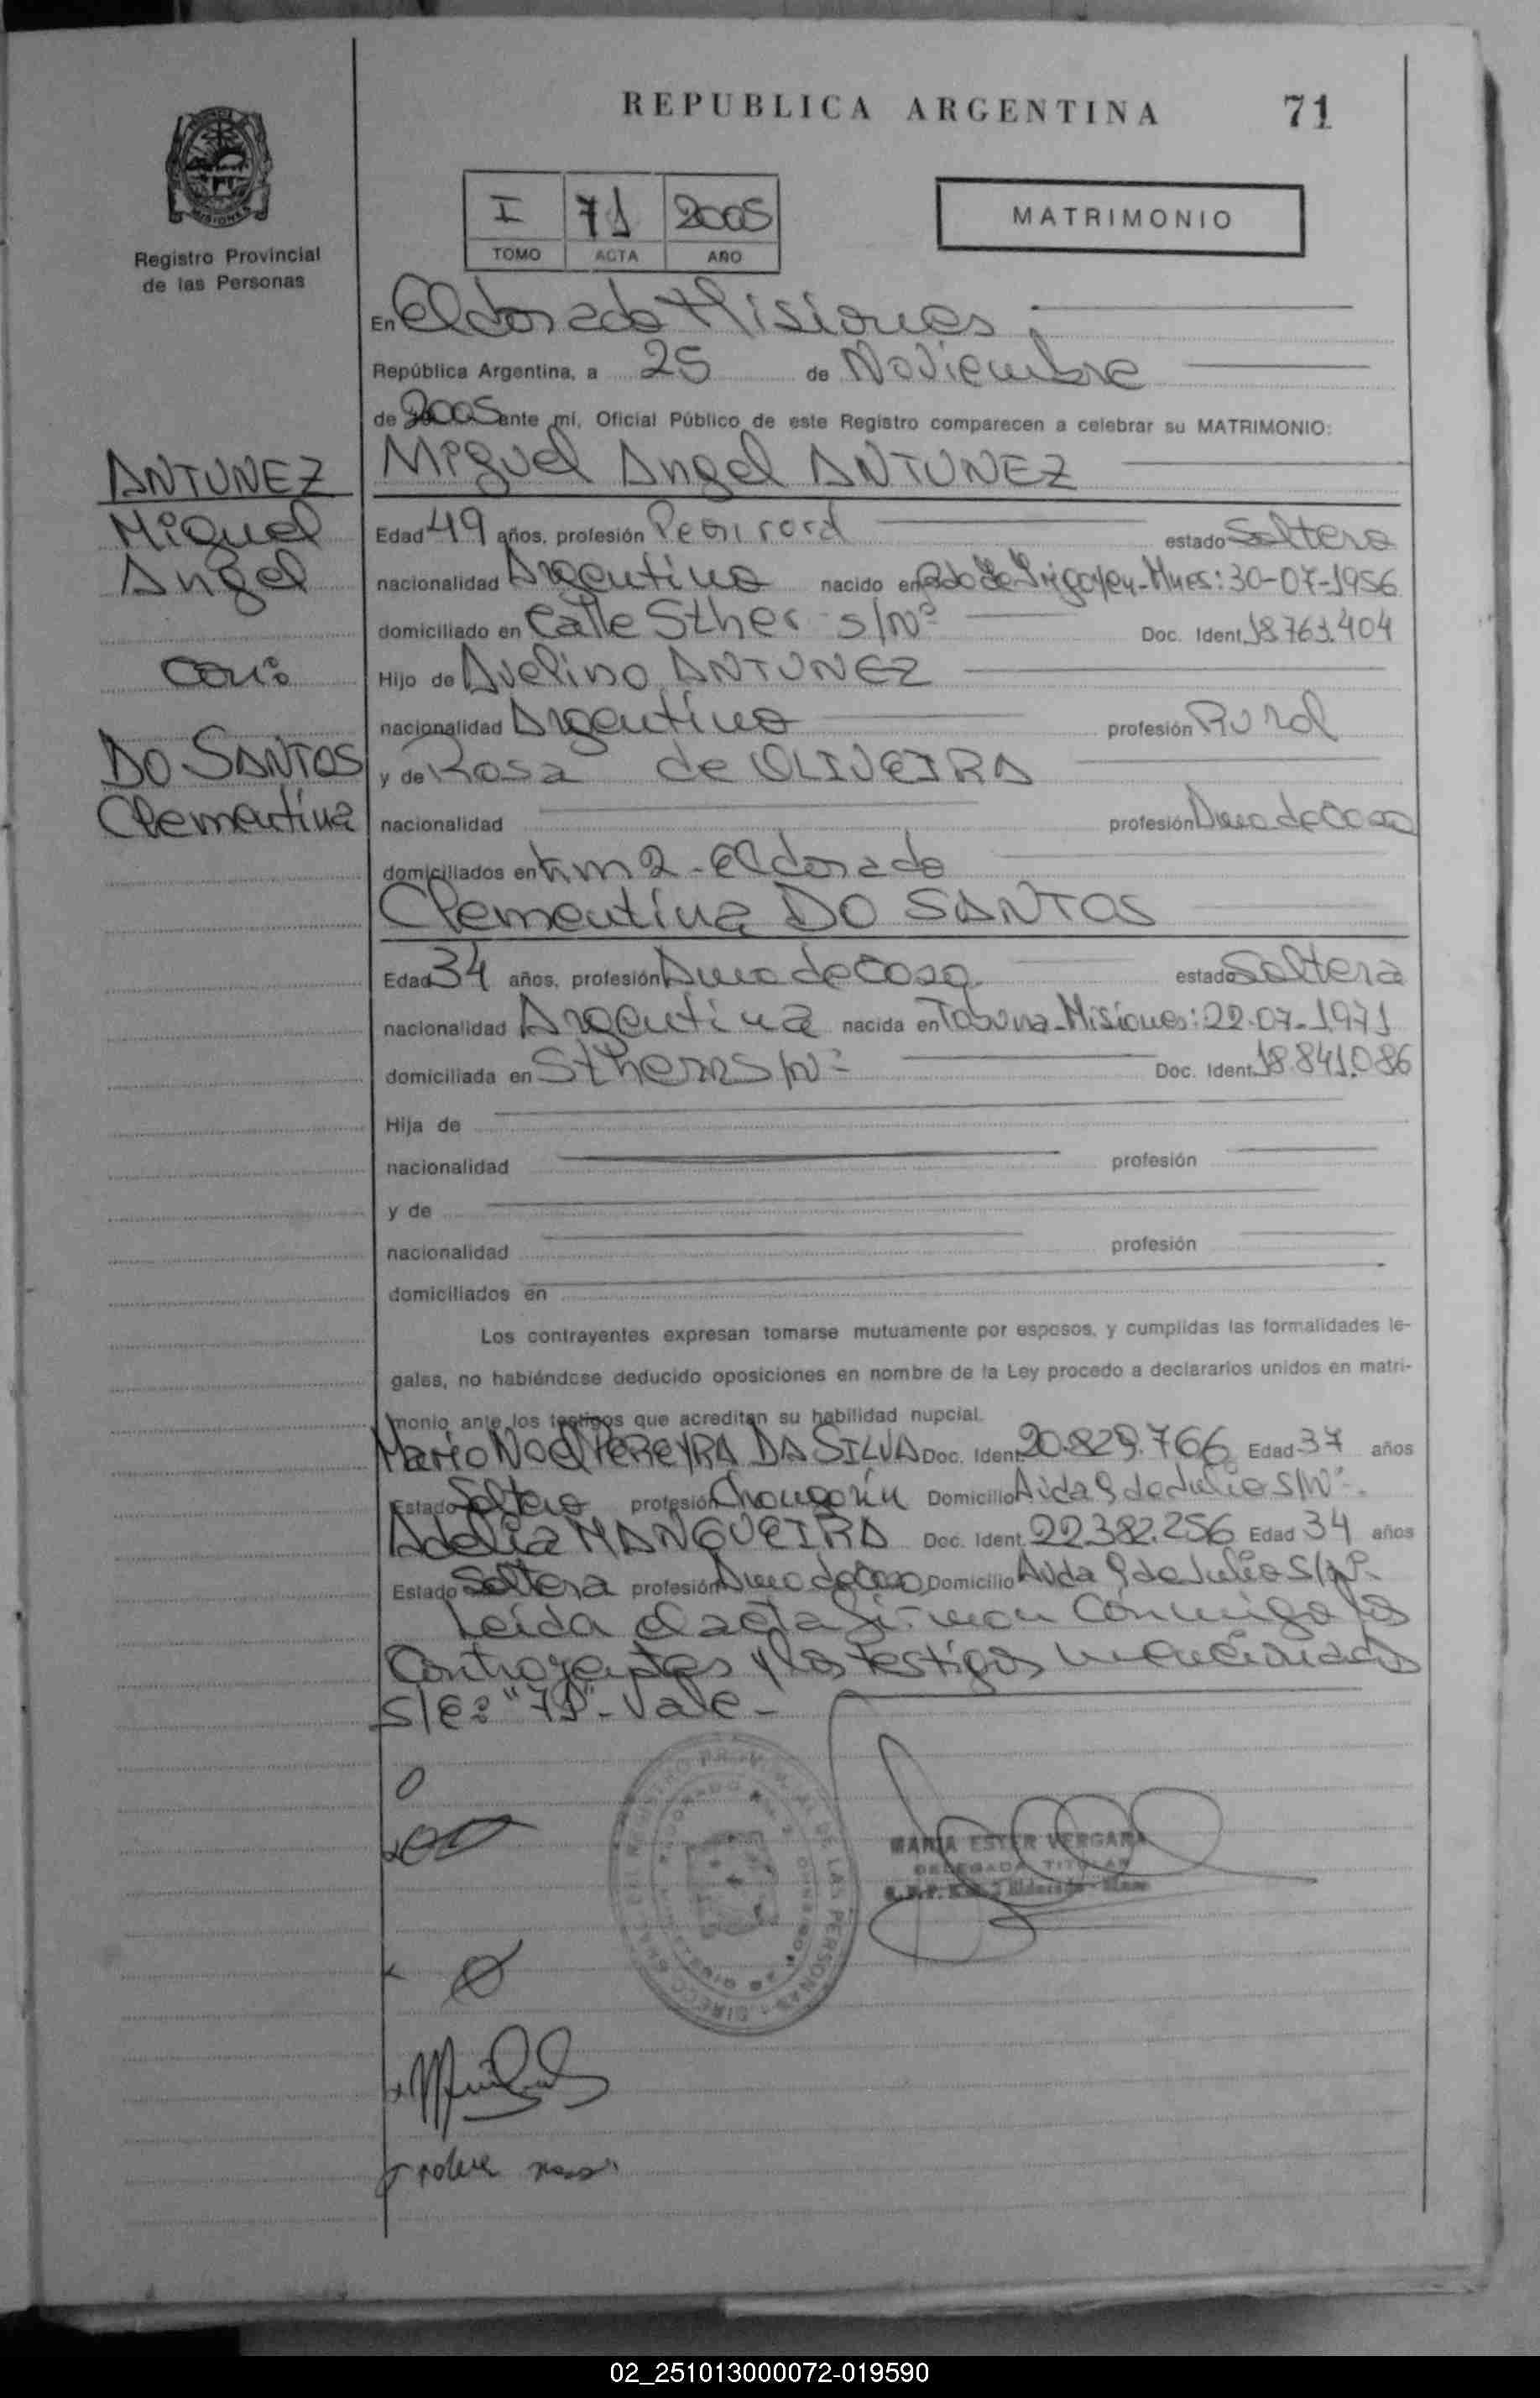 REPUBLICA ARGENTINA 71
MISIONES
Registro Provincial
de las Personas
I 71 2005
TOMO ACTA AÑO
MATRIMONIO
En Eldorado Misiones
República Argentina, a 25 de Noviembre
de 2005 ante mí, Oficial Público de este Registro comparecen a celebrar su MATRIMONIO:
ANTUNEZ
Miguel
Angel
con:
DO SANTOS
Clementina
Miguel Angel ANTUNEZ
Edad 49 años, profesión estado Soltero
nacionalidad Argentino nacido en Bdo de Irigoyen-Mnes: 30-07-1956
domiciliado en Calle Sther s/Nº Doc. Ident. 18.763.404
Hijo de Avelino ANTUNEZ
nacionalidad Argentino profesión Rural
y de Rosa de OLIVEIRA
nacionalidad profesión Ama de Casa
domiciliados en Km 2 - Eldorado
Clementina DO SANTOS
Edad 34 años, profesión Ama de Casa estado Soltera
nacionalidad Argentina nacida en Tobuna-Misiones: 22-07-1971
domiciliada en S/Nº Doc. Ident. 18.841.086
Hija de
nacionalidad profesión
y de
nacionalidad profesión
domiciliados en
Los contrayentes expresan tomarse mutuamente por esposos, y cumplidas las formalidades le-
gales, no habiéndose deducido oposiciones en nombre de la Ley procedo a declararlos unidos en matri-
monio ante los testigos que acreditan su habilidad nupcial.
Mario Noel PEREYRA DA SILVA Doc. Ident. 20.829.766 Edad 37 años
Estado Soltero profesión Domicilio Avda 9 de Julio S/Nº.
Adelia MANGUEIRA Doc. Ident. 22.382.256 Edad 34 años
Estado Soltera profesión Ama de Casa Domicilio Avda 9 de Julio S/Nº
Leída el acta firman conmigo los
Contrayentes y los testigos mencionados
S/E: "71"- Vale -
MARIA ESTER VERGARA
DELEGADA TITULAR
02_251013000072-019590